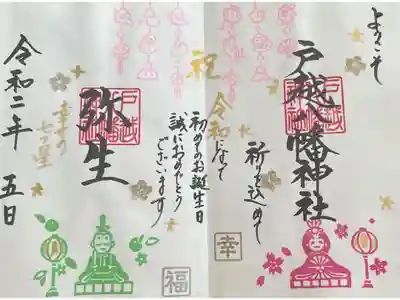 ようこそ
戸越八幡神社
祈りを込めて
令和になって
幸
祝
初めてのお誕生日
誠におめでとう
ございます
弥生
幸せの
七つ星
令和二年 五日
福